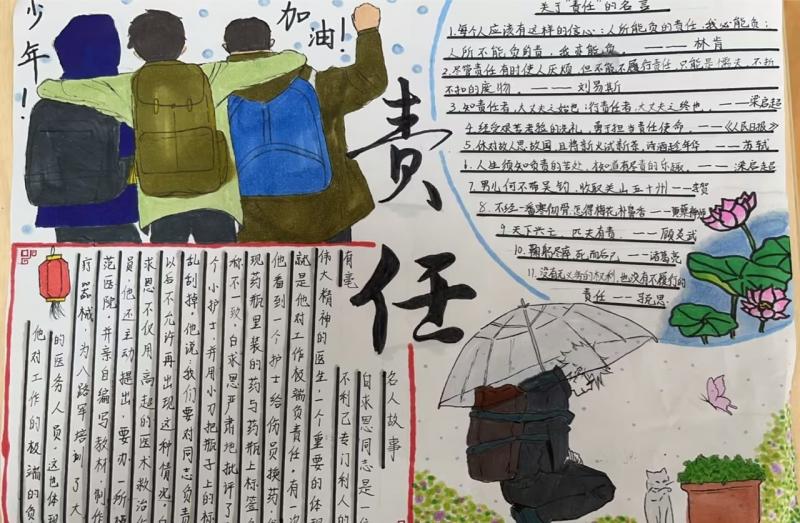 少年！
加油！
责任
关于“责任”的名言
1.每个人应该有这样的信心：人所能负的责任，我必能负；
人所不能负的责，我亦能负。———林肯
2.尽管责任有时使人厌烦，但不能不履行责任，只能是懦夫，不折
不扣的废物。———刘易斯
3.知责任者，大丈夫之始也；行责任者，大丈夫之终也。——梁启超
4.经受艰苦考验的洗礼，勇于担当责任使命。——《人民日报》
5.休对故人思故国，且将新火试新茶，诗酒趁年华——苏轼
6.人生须知负责的苦处，才知道有尽责的乐趣。——梁启超
7.男儿何不带吴钩，收取关山五十州——李贺
8.不经一番寒彻骨，怎得梅花扑鼻香——黄蘖禅师
9.天下兴亡，匹夫有责——顾炎武
10.鞠躬尽瘁，死而后已。——诸葛亮
11.没有无义务的权利，也没有不履行的
责任——马克思
名人故事
白求恩同志是一
有毫不利己专门利人的
伟大精神的医生，一个重要的体现
就是他对工作极端负责任，有一次
他看到一个护士给伤员换药，
现药瓶里装的药与药瓶上标签
称不一致，白求恩严肃地批评了
个小护士，并用小刀把瓶子上的标
乱刮掉，他说我们要对同志负责
以后不允许再出现这种情况，
求恩不仅用高超的医术救治
员，他还主动提出，要办一所
范医院，并亲自编写教材，制作
疗器械，为八路军培到了大
的医务人员，这也体现
他对工作的极端的负